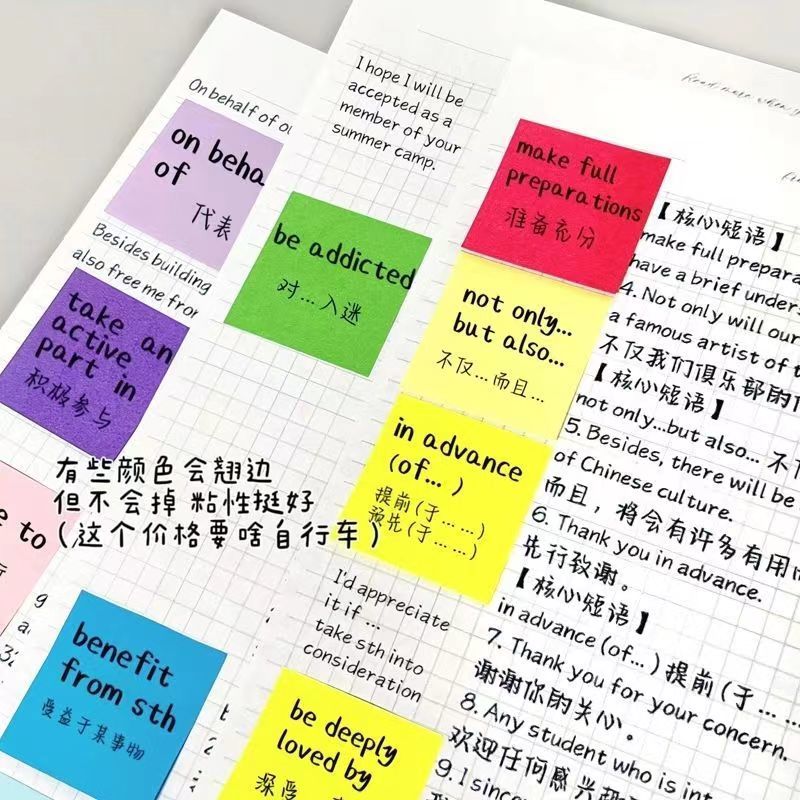 On behalf of
on beha
of
代表
Besides building
also free me from
take an
active
part in
积极参与
e to
benefit
from sth
受益于某事物
I hope I will be
accepted as a
member of your
summer camp.
be addicted
对…入迷
有些颜色会翘边
但不会掉 粘性挺好
(这个价格要啥自行车)
make full
preparations
准备充分
not only...
but also...
不仅…而且…
in advance
(of... )
提前(于……)
预先(于……)
I'd appreciate
it if ...
take sth into
consideration
be deeply
loved by
深受
Read more when
【核心短语】
make full prepara
have a brief unders
4. Not only will our
a famous artist of t
不仅我们俱乐部的
【核心短语】
not only...but also... 不
5. Besides, there will be
of Chinese culture.
而且，将会有许多有用
6. Thank you in advance.
先行致谢。
【核心短语】
in advance (of...) 提前(于……
7. Thank you for your concern.
谢谢你的关心。
8. Any student who is int
欢迎任何感兴趣
9. I sincer